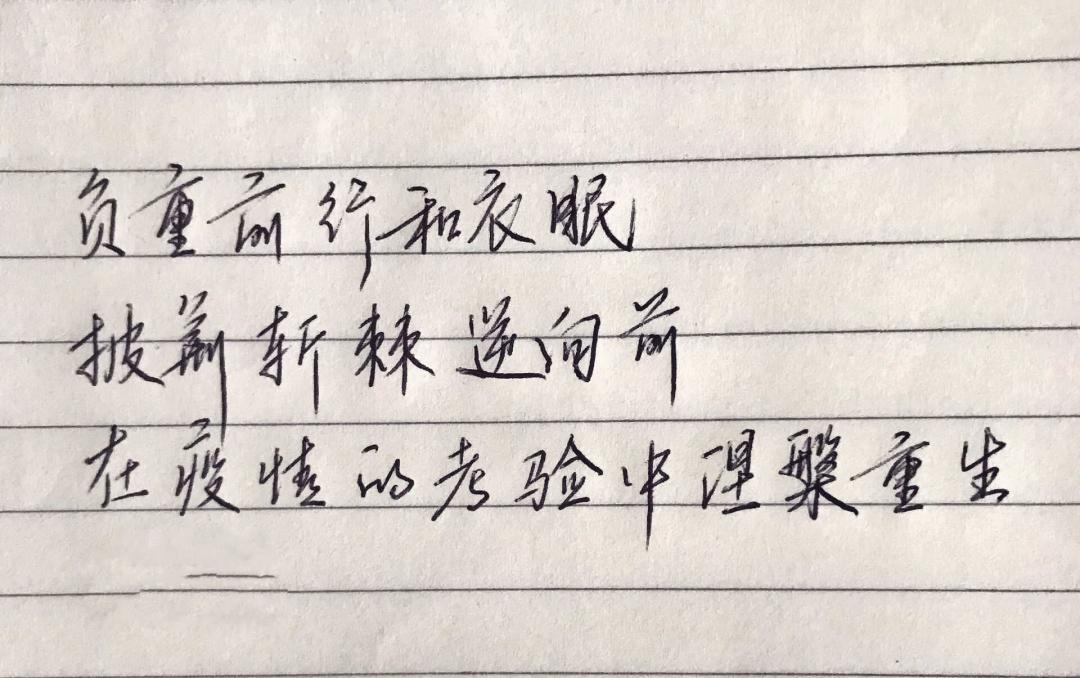 负重前行和衣眠
披荆斩棘逆向前
在疫情的考验中涅槃重生